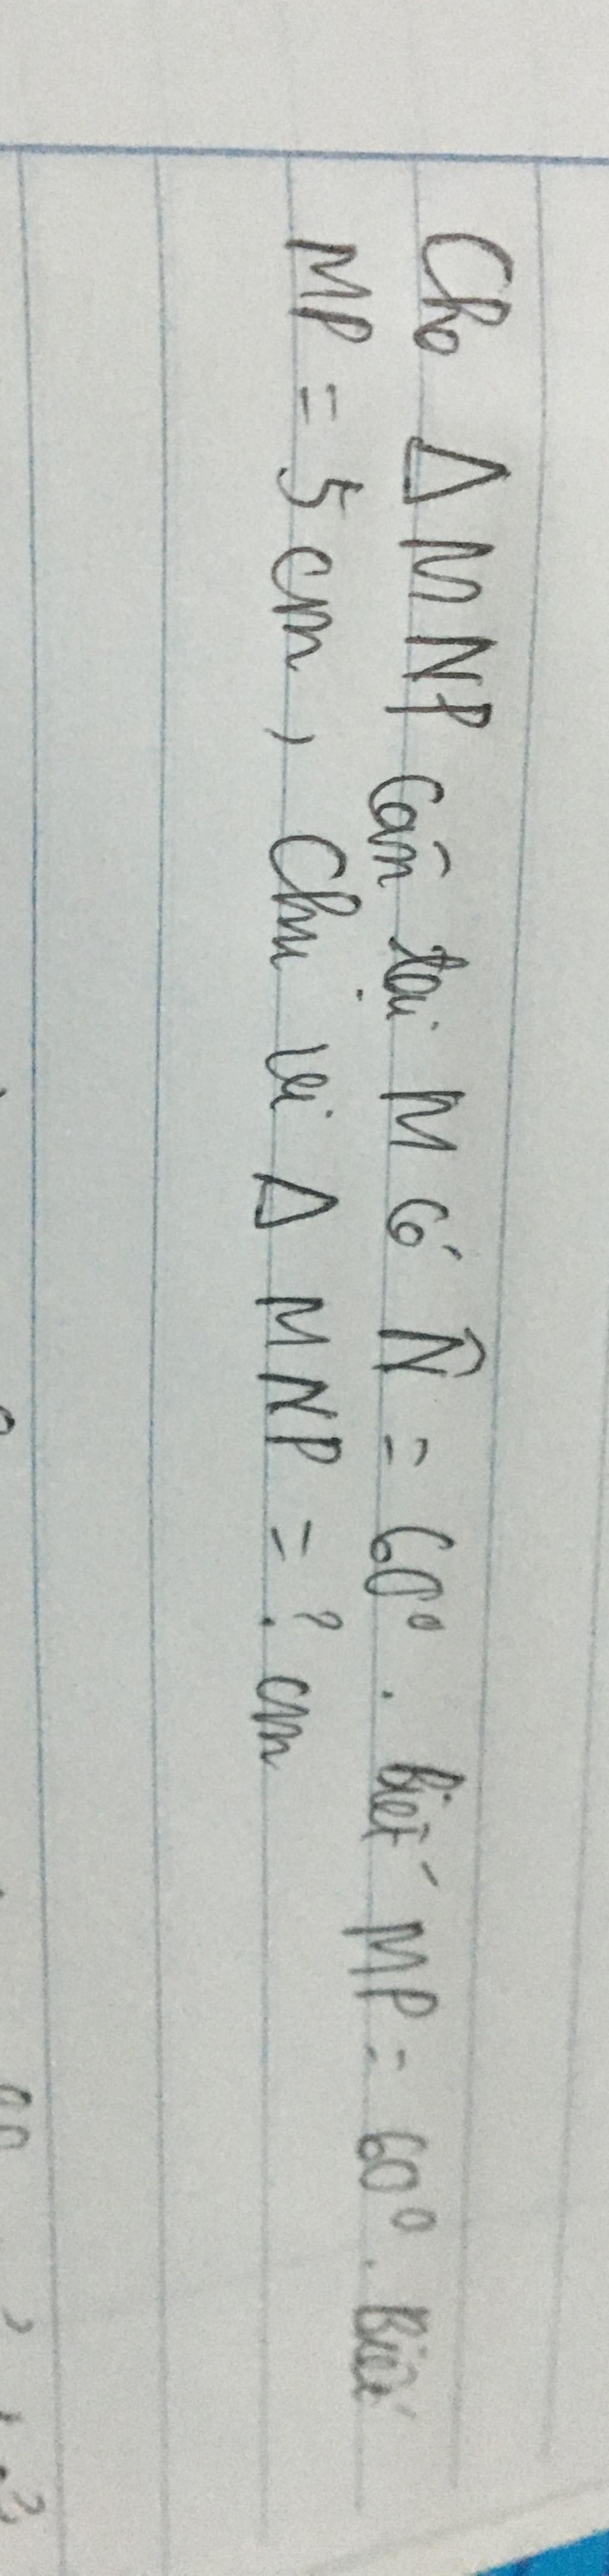 Cho Δ MNP cân tại M có N̂ = 60°. biết MP = 60°. Biết
MP = 5 cm, Chu vi Δ MNP = ? cm